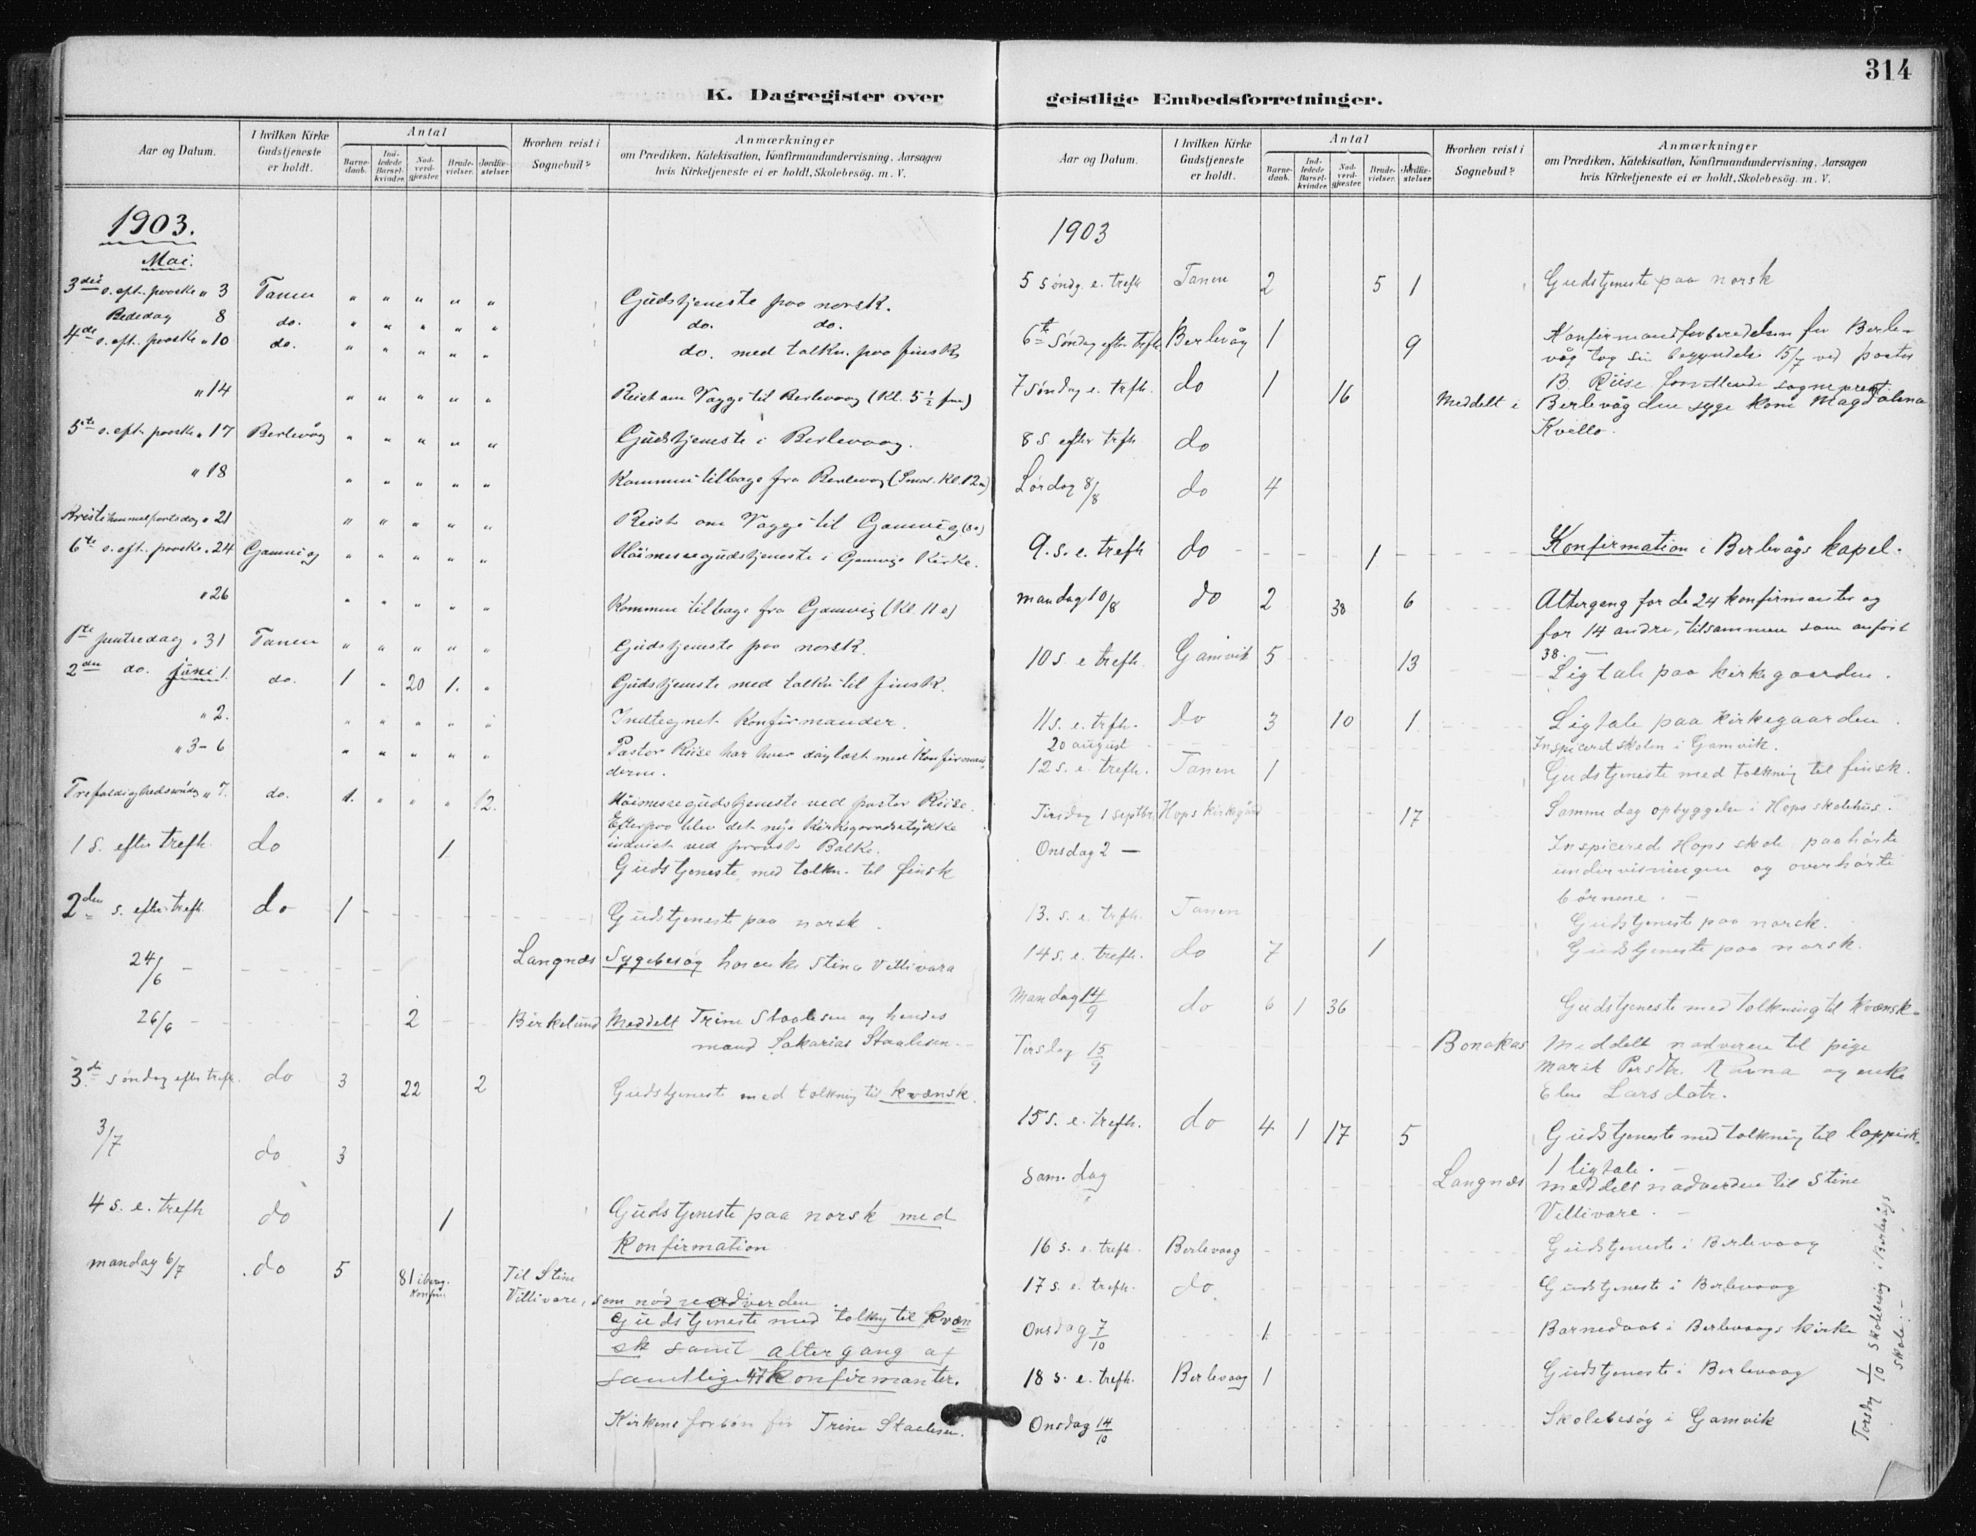 314
K. Dagregister over
Aar og Datum.
I hvilken Kirke Gudstjeneste er holdt.
Antal
Barne-daab.
Ind-ledede Barsel-kvinder.
Nad-verd-gjester.
Brude-vielser.
Jordfæ-stelser.
Hvorhen reist i Sognebud?
Anmærkninger
om Prædiken, Katekisation, Konfirmandundervisning, Aarsagen
hvis Kirketjeneste ei er holdt, Skolebesög. m. V.
1903.
Mai.
3die s. eft. paaske " 3 Tanen " " " " " Gudstjeneste paa norsk.
Bededag 8 do. " " " " " do. do.
4de s. eft. paaske " 10 do. " " " " " do. med tolkn. paa finsk
" 14 " " " " " Reist om Vagge til Berlevaag (Kl. 5 1/2 fm)
5te s. eft. paaske " 17 Berlevåg " " " " " Gudstjeneste i Berlevaag.
" 18 " " " " " Kommen tilbage fra Berlevaag (Kl. 12)
Kristi himmelfartsdag " 21 " " " " " Reist om Vagge til Gamvig
6te s. eft. paaske " 24 Gamvig " " " " " Höimessegudstjeneste i Gamvigs Kirke.
" 26 " " " " " Kommen tilbage fra Gamvig (Kl. 11)
1ste pintsedag " 31 Tanen " " " " " Gudstjeneste paa norsk.
2den do. Juni 1. do. 1 " 20 1. " Gudstjeneste med tolkn. til finsk.
" 2. " " " " " Indtegnet Konfirmander.
" 3-6 " " " " " Pastor Riise har hver dag læst med Konfirman-
derne.
Trefoldighedssöndag " 7. do. 1. " " " 12. Höimessegudstjeneste ved pastor Riise.
Efterpaa blev det nye Kirkegaardsstykke
indviet ved provst Balke.
1 s. efter trefh. do 1 Gudstjeneste med tolkn. til finsk
2den s. efter trefh. do 1 Gudstjeneste paa norsk.
24/6 Langnæs Sygebesög hos enke Stina Villivara
26/6 2 Birkelund Meddelt Trine Staalesen og hendes
mand Sakarias Staalesen.
3de söndag efter trefh. do 3 22 2 Gudstjeneste med tolkning til kvænsk.
3/7 do 3
4 s. e. trefh do 1 Gudstjeneste paa norsk med
Konfirmation
mandag 6/7 do 5 81 iberegn. konfirm. Til Stine
Villivare, som nöd nadverden
Gudstjeneste med tolkning til kvæn
sk samt altergang af
samtlige 47 konfirmanter.
Kirkens forbön for Trine Staalesen.
geistlige Embedsforretninger.
Aar og Datum.
I hvilken Kirke Gudstjeneste er holdt.
Antal
Barne-daab.
Ind-ledede Barsel-kvinder.
Nad-verd-gjester.
Brude-vielser.
Jordfæ-stelser.
Hvorhen reist i Sognebud?
Anmærkninger
om Prædiken, Katekisation, Konfirmandundervisning, Aarsagen
hvis Kirketjeneste ei er holdt, Skolebesög. m. V.
1903
5 söndg. e. trefh Tanen 2 5 1 Gudstjeneste paa norsk
6te Söndag efter trefh Berlevåg 1 9 Konfirmandforberedelsen for Berle-
våg tog sin begyndelse 15/7 ved pastor
B. Riise forrettende sogneprest.
7 söndag e. trefh. do 1 16 Meddelt i Berlevåg den syge kone Magdalena
Kvello.
8 s efter trfh do
Lördag 8/8 do 4
9. s. e. trefh do 1 Konfirmation i Berlevågs kapel.
mandag 10/8 do 2 38 6 Altergang for de 24 konfirmanter og
for 14 andre, tilsammen som anfört
38.
10 s. e trefh. Gamvik 5 13 Ligtale paa kirkegaarden.
11 s. e. trfh. do 3 10 1 Ligtale paa kirkegaarden.
20 august Inspiceret skolen i Gamvik.
12 s. e. trefh. Tanen 1 Gudstjeneste med tolkning til finsk.
Tirsdag 1 septbr. Hops kirkegård 17 Samme dag opbyggelse i Hops skolehus.
Onsdag 2 — Inspicered Hops skole, paahörte
undervisningen og overhörte
börnene.
13. s. e. trfh. Tanen Gudstjeneste paa norsk.
14 s. e. trefh. do 7 1 Gudstjeneste paa norsk.
Mandag 14/9 do 6 1 36 Gudstjeneste med tolkning til kvænsk.
Tirsdag 15/9 Bonakas Meddelt nadveren til pige
Marit Persdtr. Ravna og enke
Elen Larsdatr.
15 s. e. trefh. do 4 1 17 5 Gudstjeneste med tolkning til lappisk.
1 ligtale.
Sam. dag Langnæs meddelt nadverden til Stine
Villivare.
16 s. e. trefh. Berlevaag Gudstjeneste i Berlevaag
17 s. e. trefh. do Gudstjeneste i Berlevaag
Onsdag 7/10 1 Barnedaab i Berlevaags kirke
18 s. e. trefh. Berlevaag 1 Gudstjeneste i Berlevaag
Onsdag 14/10 Skolebesög i Gamvik
Torsdag 1/10 skolebesög i Berlevågs
skole.